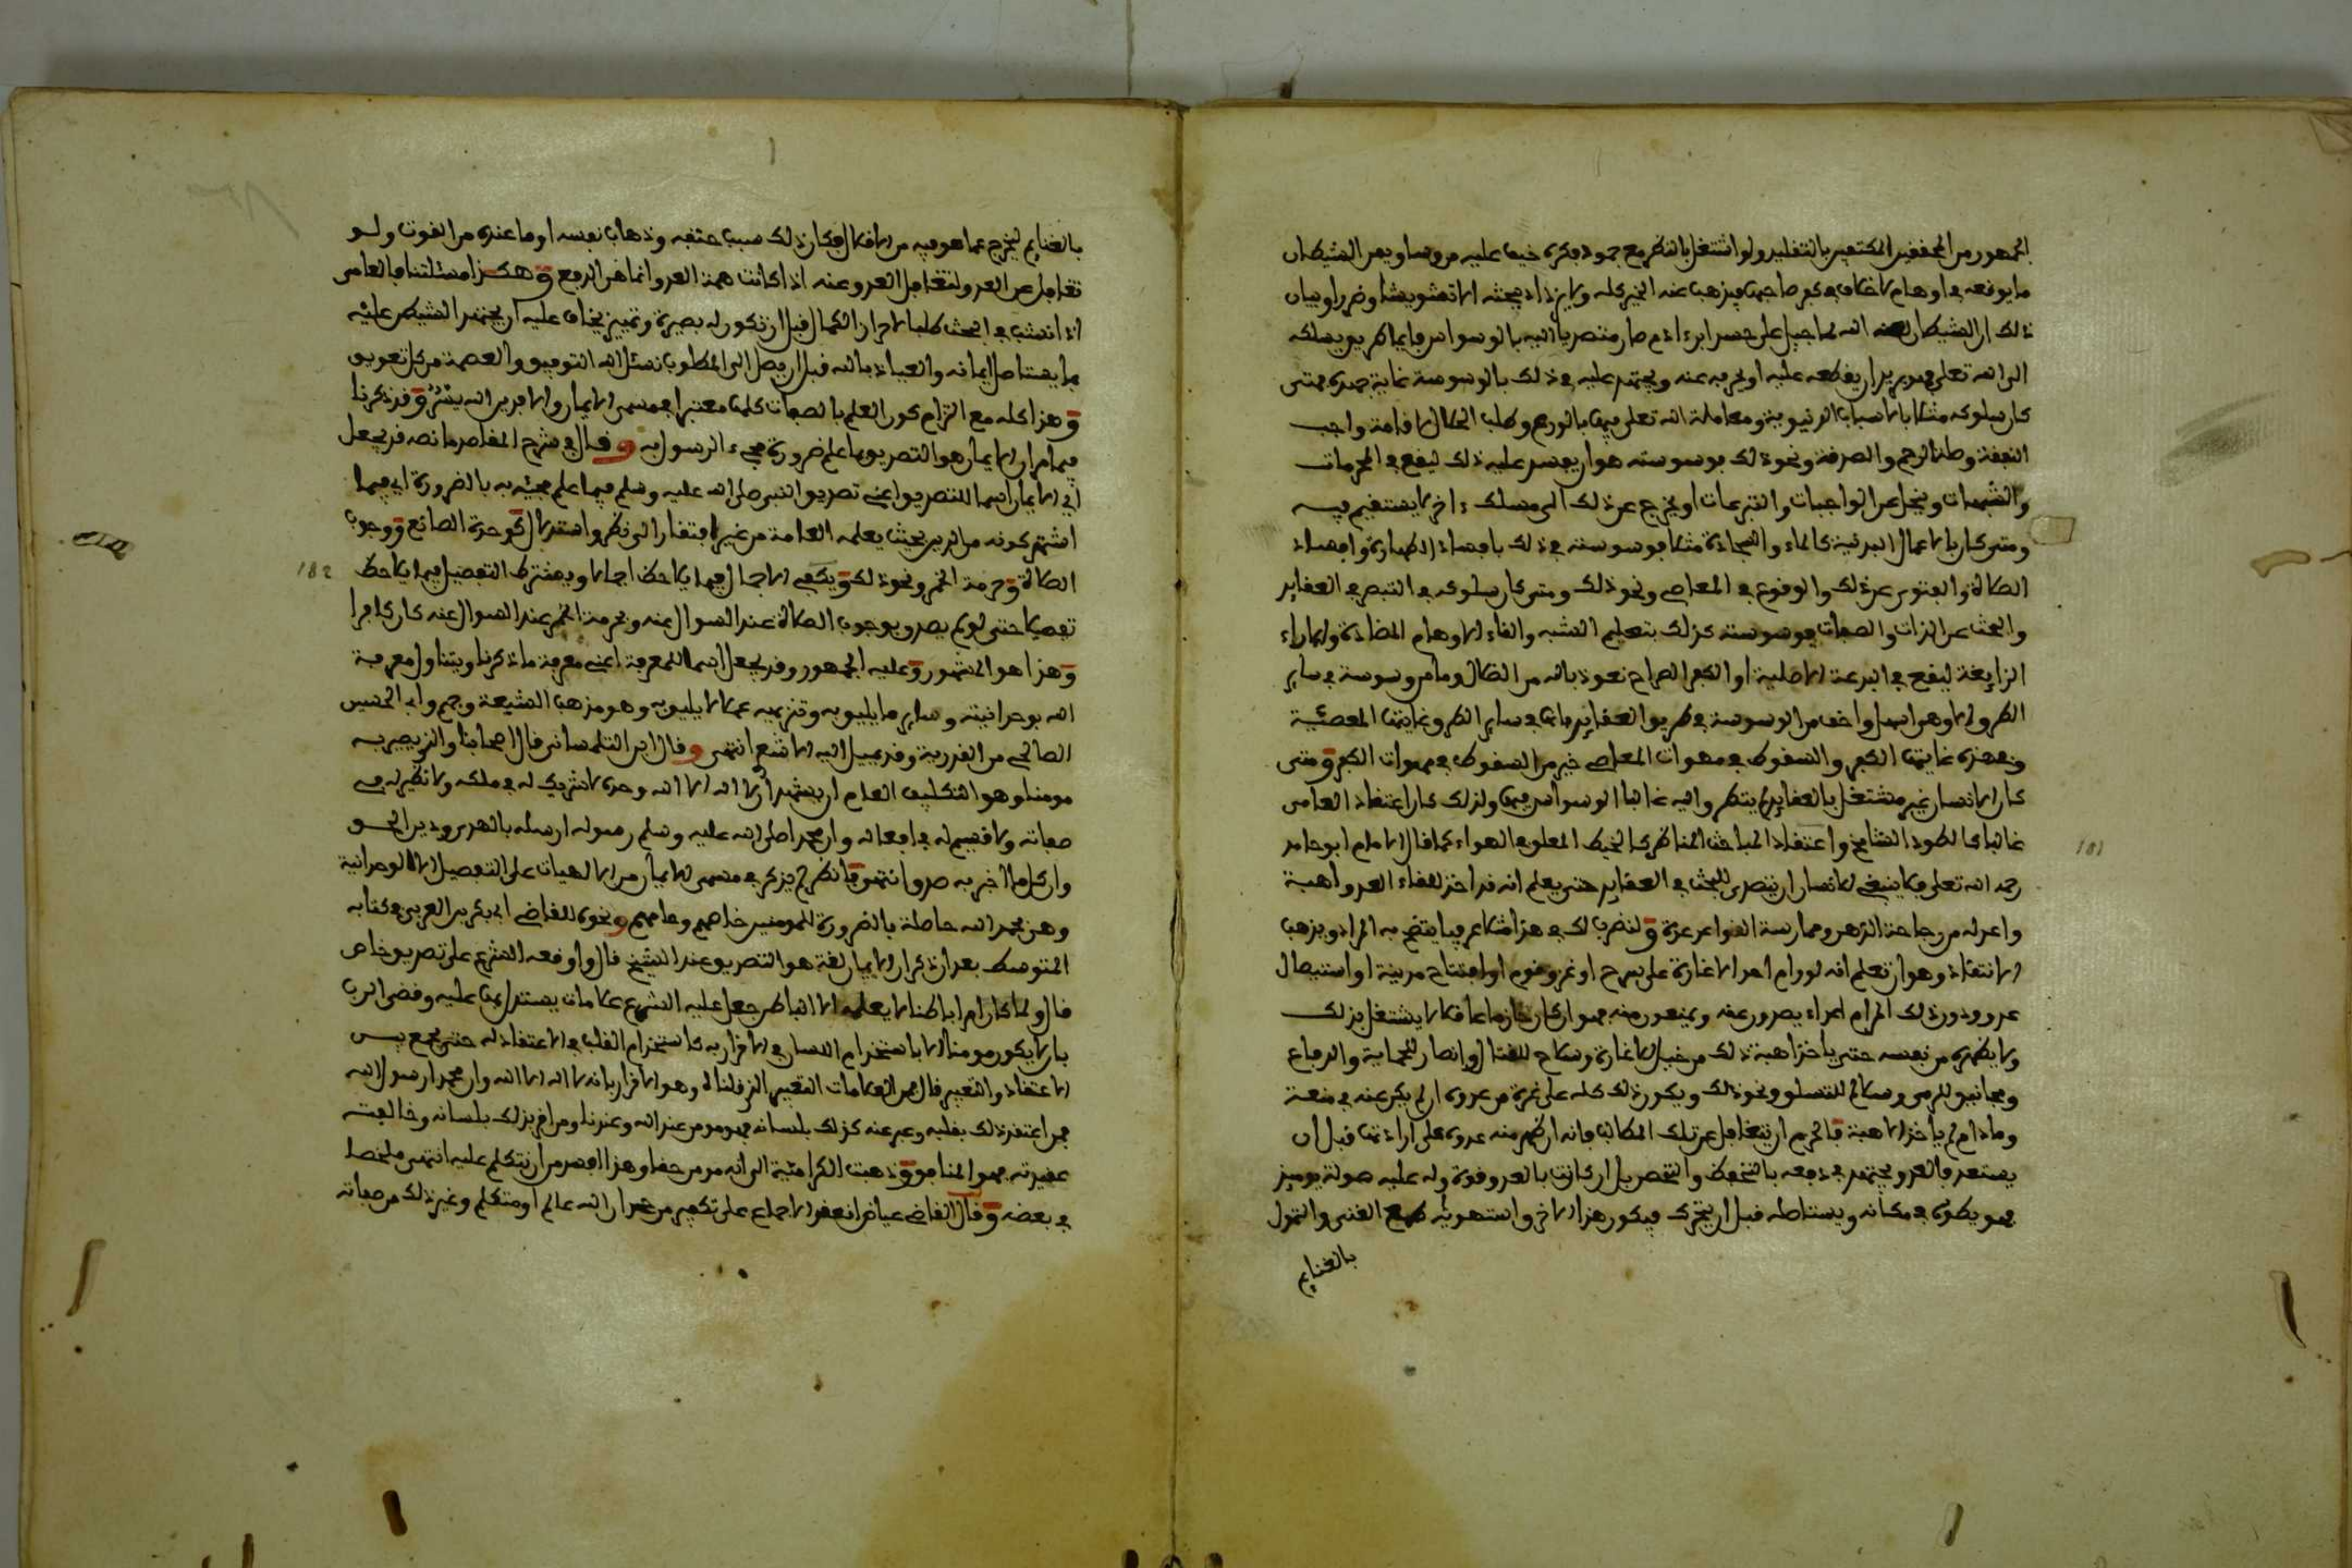 الجمهور من المحققين المكتفين بالتقليد ولو اشتغل بالنظر مع جمود فكره خيف عليه من وساوس الشيطان
ما يوقعه في اوهام لا تخلف في كفر صاحبها فيذهب عنه الخير كله ولا يزداد ببحثه الا تشويشا وضررا وبيان
ذلك ان الشيطان لعنه الله لما جبل على حسد ابن ادم صار متصديا اليه بالوسواس فايما طريق يسلكه
الى الله تعلى فهو يريد ان يقطعه عليه او يحرفه عنه ويجتهد عليه في ذلك بالوسوسة غاية جهده فمتى
كان سلوكه مثلا بالاسباب الدنيوية ومعاملة الله تعلى فيها بالورع وطلب الحلال لاقامة واجب
النفقة وصلة الرحم والصدقة ونحو ذلك فوسوسته هو ان يفسد عليه ذلك ليقع في المحرمات
والشبهات ويبخل عن الواجبات والتبرعات او يخرج عن ذلك الى مسلك ءاخر لا يستقيم فيه
ومتى كان بالاعمال البدنية كالماء والسجادة مثلا فوسوسته في ذلك بافساد الطهارة وافساد
الصلاة والفتور عن ذلك والوقوع في المعاصي ونحو ذلك ومتى كان سلوكه في التبصر في العقايد
والبحث عن الذات والصفات فوسوسته كذلك بتعليم الشبه والقاء الاوهام المضادة والاراء
الزايغة ليقع في البدعة الاصلية او الكفر الصراح نعوذ بالله من الضلال وما من وسوسة في ساير
الطرق الا وهو اسهل واخف من الوسوسة في طريق العقايد فانها في ساير الطرق غايتها المعصية
وهذه غايتها الكفر والسقوط في مهوات المعاصي خير من السقوط في مهوات الكفر ومتى
كان الانسان غير مشتغل بالعقايد لم يتطرق اليه غالبا الوسواس فيها ولذلك كان اعتقاد العامي
غالبا كالطود الشامخ واعتقاد المباحث المناظر كالخيط المعلق في الهواء كما قال الامام ابو حامد
رحمه الله تعلى فلا ينبغي للانسان ان يتصدى للبحث في العقايد حتى يعلم انه قد اخذ للقاء العدو اهبة
واعد له من رجاحة الذهن وممارسة القواعد عدة ولنضرب لك في هذا مثلا عرفيا يتضح به المراد ويذهب
الانتقاد وهو ان تعلم انه لو رام احد الاغارة على سرح او غزو قوم او افتتاح مدينة او استيصال
عدو ودون ذلك المرام اعداء يصدون عنه ويمنعون منه فهو ان كان حازما عاقلا لا يشتغل بذلك
ولا يظهره من نفسه حتى ياخذ اهبة ذلك من خيل للاغارة وسلاح للقتال وانصار للحماية والدفاع
ومجانيق للرمي وسلالم للتسلق ونحو ذلك ويكون ذلك كله على غرة من عدوه ان لم يكن عنه في منعة
وما دام لم ياخذ الاهبة فالحزم ان يتغافل عن تلك المطالب فانه ان ظهر منه عدوه على ارادتها قبل ان
يستعد فالعدو يجتهد في دفعه بالتحفظ والتحصن بل ان كانت بالعدو قوة وله عليه صولة يوميذ
فهو يطرقه في مكانه ويستاصله قبل ان يتحرك فيكون هذا الاخر واستهويه طمع الغنى والتمول
بالغنايم
181
بالغنايم ليخرج عما هو فيه من الاقلال فكان ذلك سبب حتفه وذهاب نفسه او ما عنده من القوت ولو
تغافل عن العدو لتغافل العدو عنه اذا كانت همة العدو انما هي الدفع وهكذا مسئلتنا فالعامي
اذا انتشب في البحث طلبا لاحراز الكمال قبل ان تكون له بصيرة وتمييز يخاف عليه ان يجتهد الشيطان عليه
بما يستاصل ايمانه والعياذ بالله قبل ان يصل الى المطلوب نسئل الله التوفيق والعصمة من كل تعويق
وهذا كله مع التزام كون العلم بالصفات كلها معتبرا في مسمى الايمان والا فدين الله يسر وقد ذكرنا
فيما مر ان الايمان هو التصديق بما علم ضرورة مجيء الرسول به وقال في شرح المقاصد ما نصه قد يجعل
اي الايمان اسما للتصديق اعني تصديق النبي صلى الله عليه وسلم فيما علم مجيئه به بالضرورة اي فيما
اشتهر كونه من الدين بحيث يعلمه العامة من غير افتقار الى نظر واستدلال كوحدة الصانع ووجوب
الصلاة وحرمة الخمر ونحو ذلك ويكفي الاجمال فيما يلاحظ اجمالا ويشترط التفصيل فيما يلاحظ
تفصيلا حتى لو لم يصدق بوجوب الصلاة عند السوال عنه وبحرمة الخمر عند السوال عنه كان كافرا
وهذا هو المشهور وعليه الجمهور وقد يجعل اسما للمعرفة اعني معرفة ما ذكرنا ويتناول معرفة
الله بوحدانيته وساير ما يليق به وتنزيهه عما لا يليق به وهو مذهب الشيعة وجهم وابي الحسين
الصالحي من القدرية وقد يميل اليه الاشعري انتهى وقال ابن التلمساني قال اصحابنا والذي يصير به
مومنا وهو التكليف العام ان يشهد ان لا اله الا الله وحده لا شريك له في ملكه ولا نظير له في
صفاته ولا قسيم له في افعاله وان محمدا صلى الله عليه وسلم رسوله ارسله بالهدى ودين الحق
وان كل ما اخبر به صدق انتهى فانظر لم يذكر في مسمى الايمان من الالهيات على التفصيل الا الوحدانية
وهي بحمد الله حاصلة بالضرورة للمومنين خاصهم وعامهم ونحوه للقاضي ابي بكر بن العربي في كتابه
المتوسط بعد ان ذكر ان الايمان لغة هو التصديق عند الشيخ قال واوقعه الشرع على تصديق خاص
قال ولما كان امرا باطنا لا يعلمه الا الباطن جعل عليه الشرع علامات يستدل بها عليه وقضى الرب
بان لا يكون مومنا الا باستخدام اللسان في الاقرار به كاستخدام القلب في الاعتقاد له حتى يجمع بين
الاعتقاد والتعبير قال فمن العلامات التعبير الذي قلناه وهو الاقرار بانه لا اله الا الله وان محمدا رسول الله
فمن اعتقد ذلك بقلبه وعبر عنه كذلك بلسانه فهو مومن عند الله وعندنا ومن اقر بذلك بلسانه وخالفت
عقيدته فهو المنافق وذهبت الكرامية الى انه مومن حقا وهذا اهون من ان يتكلم عليه انتهى ملخصا
في بعضه وقال القاضي عياض انعقد الاجماع على تكفير من جحد ان الله عالم او متكلم وغير ذلك من صفاته
182